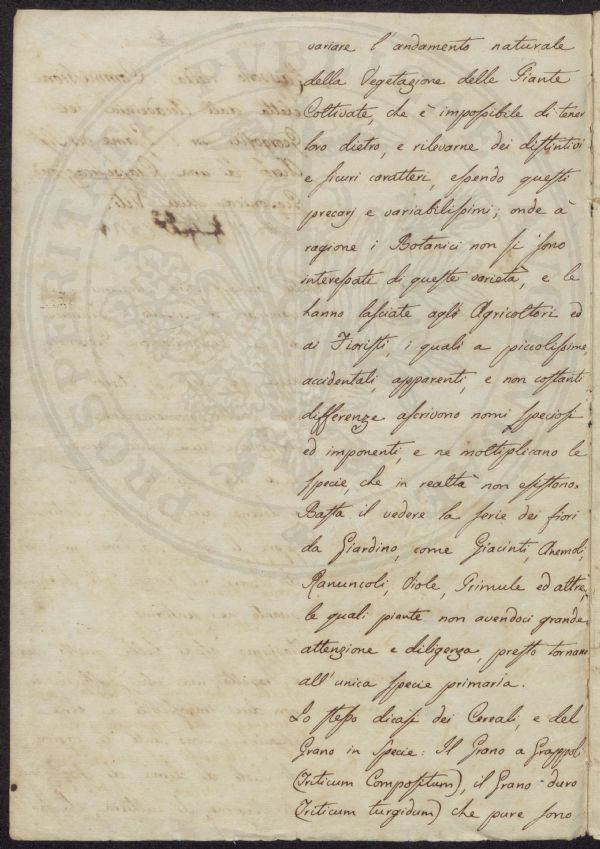 variare l'andamento naturale
della Vegetazione delle Piante
Coltivate, che è impossibile di tener
loro dietro, e rilevarne dei distintivi
e sicuri caratteri, essendo questi
precarj e variabilissimi; onde à
ragione i Botanici non si sono
interessati di queste varietà, e le
hanno lasciate agli Agricoltori ed
ai Fioristi, i quali a piccolissime,
accidentali, apparenti, e non costanti
differenze ascrivono nomi speciosi
ed imponenti, e ne moltiplicano le
specie, che in realtà non esistono.
Basta il vedere la serie dei fiori
da Giardino, come Giacinti, Anemoli,
Ranuncoli, Viole, Primule ed altre,
le quali piante non avendoci grande
attenzione e diligenza, presto tornano
all'unica specie primaria.
Lo stesso dicasi dei Cereali, e del
Grano in specie: Il Grano a Grappoli
(Triticum Compositum), il Grano duro
(Triticum turgidum) che pure sono